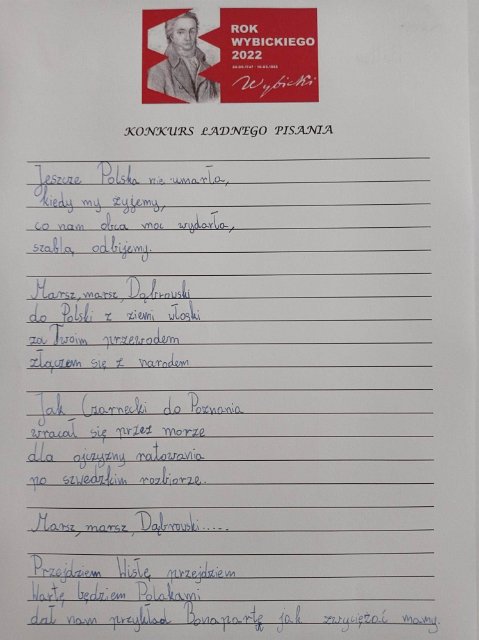 ROK
WYBICKIEGO
2022
Wybicki
KONKURS ŁADNEGO PISANIA
Jeszcze Polska nie umarła,
kiedy my żyjemy,
co nam obca moc wydarła,
szablą odbijemy.
Marsz, marsz, Dąbrowski
do Polski z ziemi włoski
za Twoim przewodem
złączem się z narodem
Jak Czarnecki do Poznania
wracał się przez morze
dla ojczyzny ratowania
po szwedzkim rozbiorze.
Marsz, marsz, Dąbrowski.....
Przejdziem Wisłę przejdziem
Wartę będziem Polakami
dał nam przykład Bonapartę jak zwyciężać mamy.